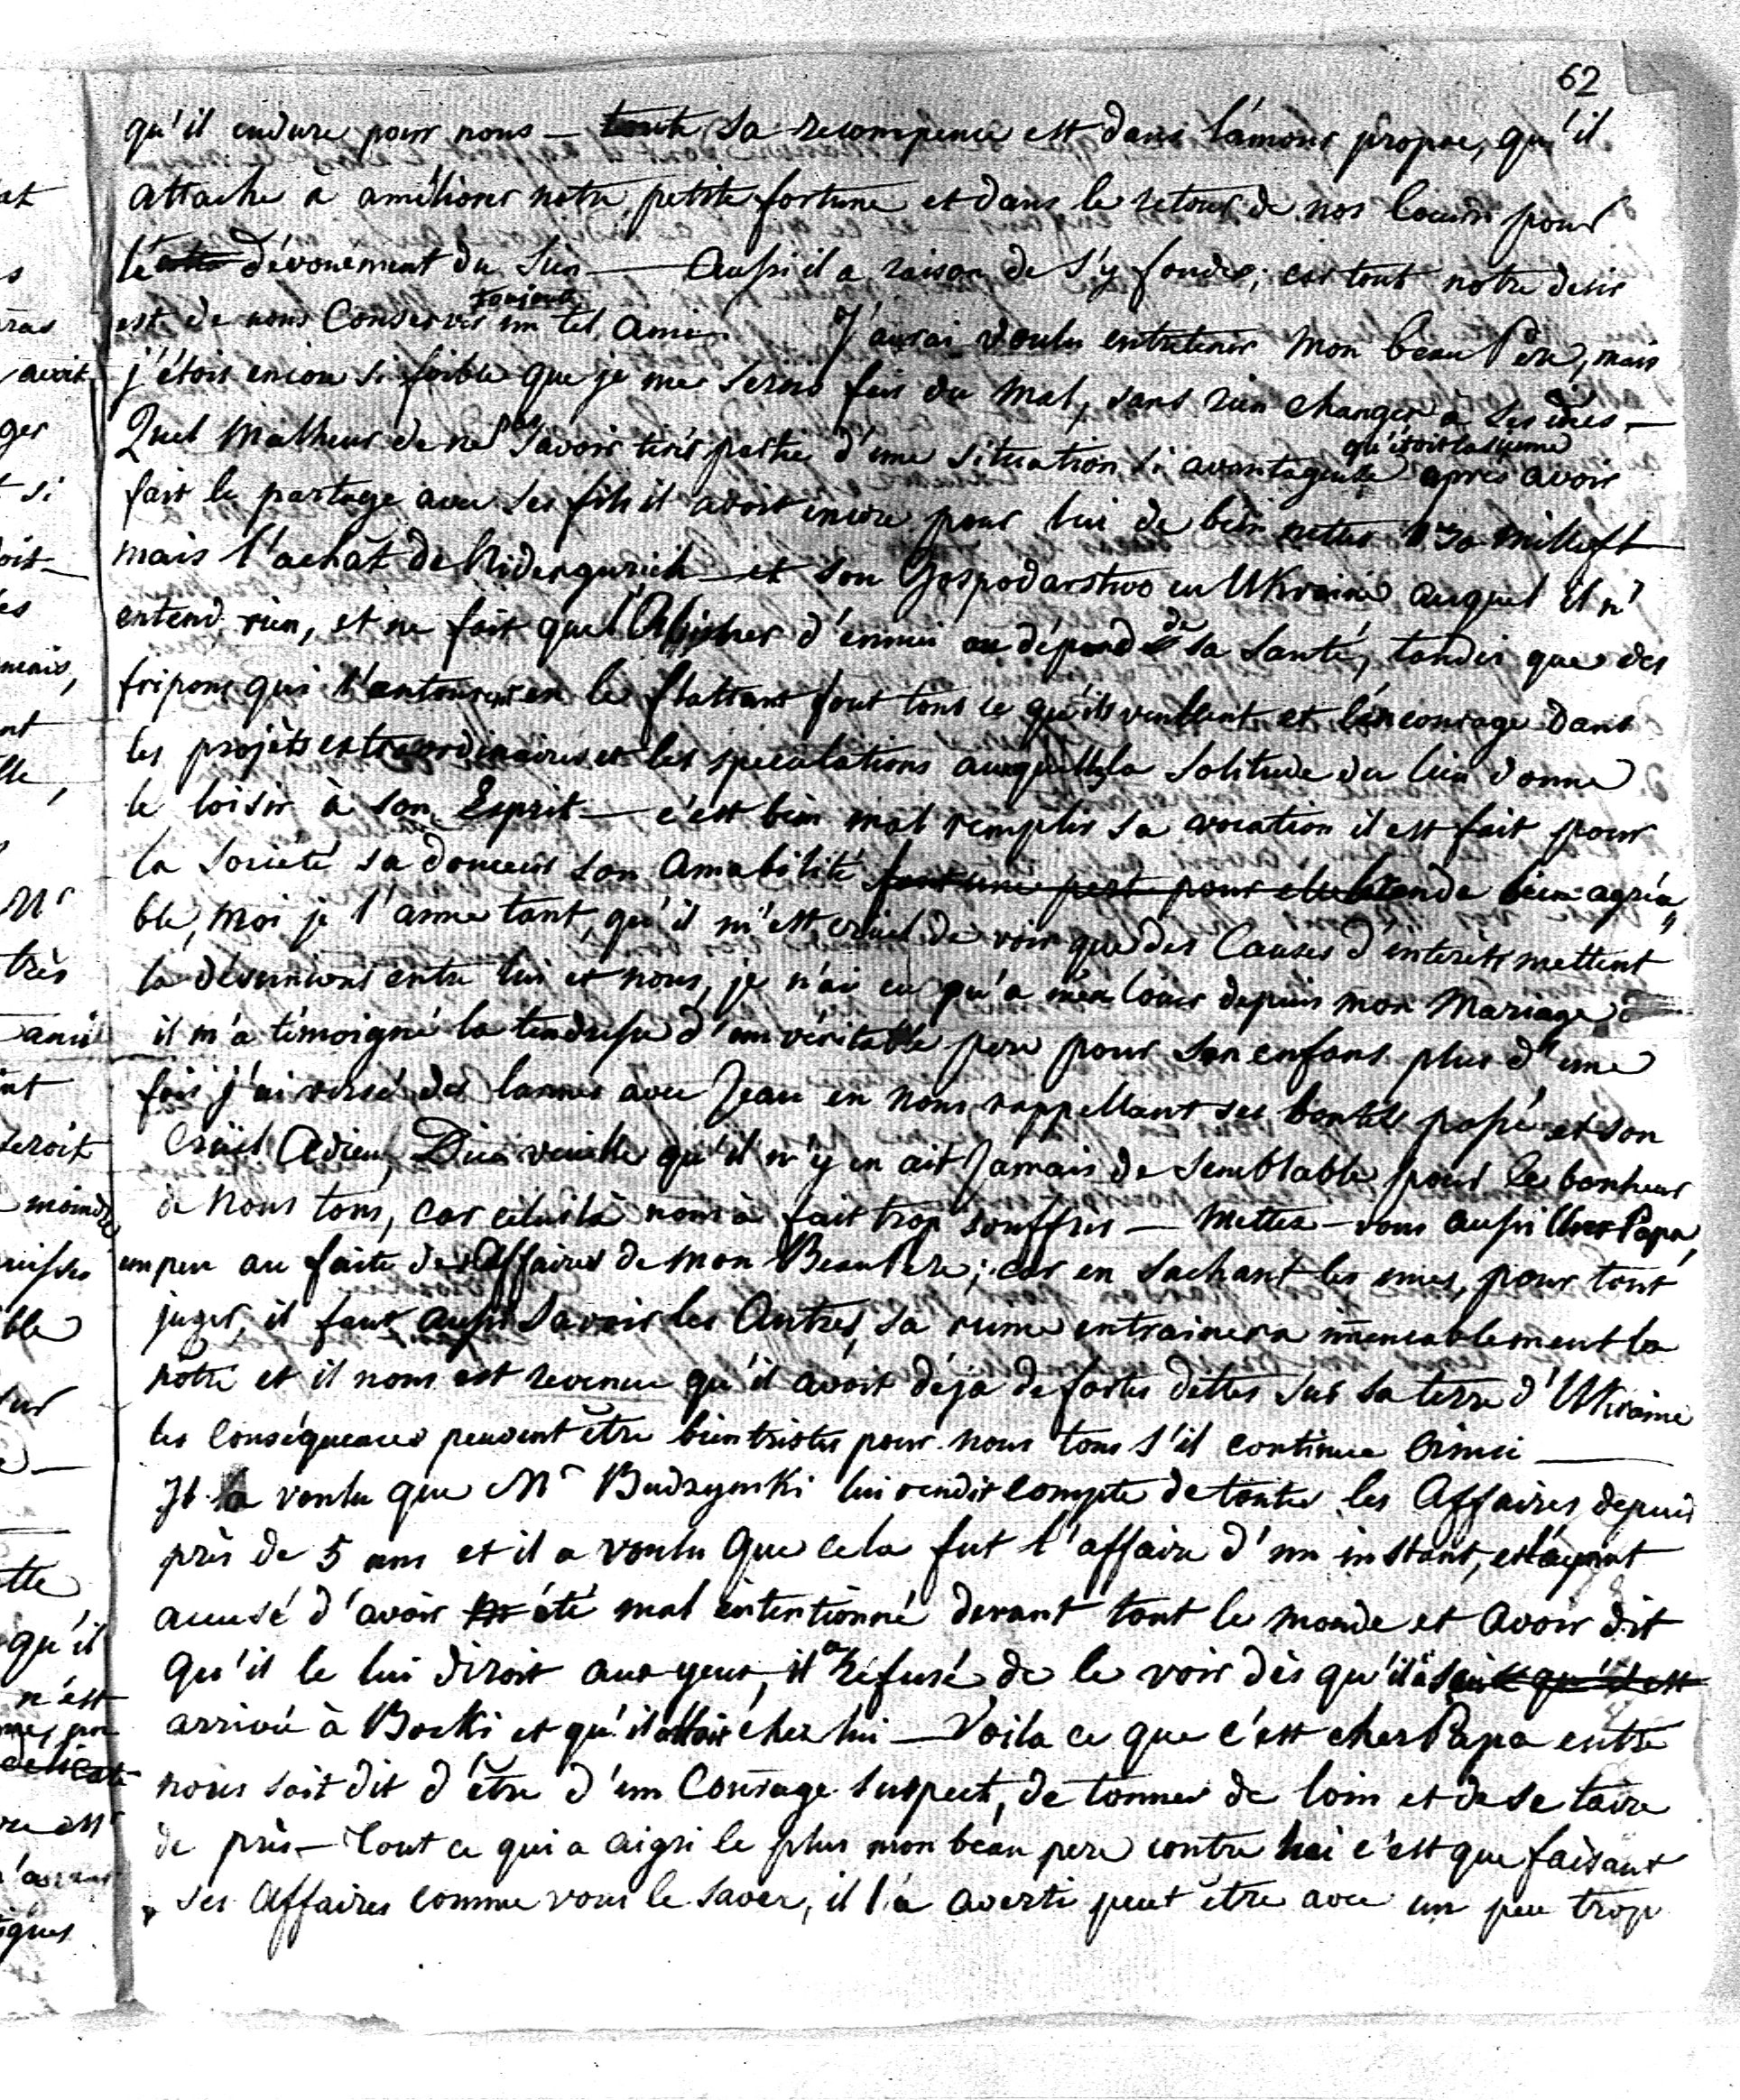 62
qu'il endure pour nous — toute sa recompence est dans l'amour propre, qu'il
attache à améliorer notre petite fortune et dans le retour de nos coeurs pour
le dévouement du Sien — Aussi il a raison de s'y fonder; car tout notre desir
est de nous Conserver toujours un tel Ami. J'aurai voulu entretenir mon beau Père, mais
j'étois encore si foible que je me serois fais du mal, sans rien changer à ses idées —
Quel Malheur de ne pas savoir tirer partie d'une situation si avantageuse qu'étoit la sienne apres avoir
fait le partage avec ses fils il avoit encore pour lui de bien nettes mille ft
mais l'achat de Nidergurich et son Gospodarstwo en Ukraine auquel il n'
entend rien, et ne fait que l' d'ennui au dépend de sa Santé, tandis que des
fripons qui l'entourent en le flattant font tout ce qu'ils veullent et l'encourage dans
les projèts extraordinaires et les speculations auxquelles la Solitude du lieu donne
le loisir à son Esprit — c'est bien mal remplir sa vocation il est fait pour
la societé sa douceur son amabilité font une pert pour elle bien agréa„
ble, moi je l'aime tant, qu'il m'est crüel de voir que des Causes d'interèts mettent
la désunions entre lui et nous, je n'ai eu qu'a m'en louer depuis mon Mariage
il m'a témoigné la tendresse d'un véritable pere pour son enfant plus d'une
fois j'ai versé des larmes avec Jean en nous rappellant ses bontés passé et son
Crüel Adieu, Dieu veuille qu'il n'y en ait Jamais de semblable pour le bonheur
de Nous tous, car celui là nous à fait trop souffrir — Mettez-vous aussi Cher Papa,
un peu au faite des Affaires de mon Beau Pere; car en sachant les unes, pour tout
juger, il faut aussi savoir les Autres, sa ruine entrainera immencablement la
nôtre et il nous est revenue qu'il avoit déja de fortes dettes sur sa terre d'Ukraine
les Conséquences peuvent être bien tristes pour nous tous s'il continue Ainsi —
Il a voulu que Mr Budzynski lui rendit compte de toutes les Affaires depuis
près de 5 ans et il a voulu que cela fut l'affaire d'un instant, et l'ayant
accusé d'avoir été mal intentionné devant tout le monde et avoir dit
qu'il le lui diroit aux yeux, il a réfusé de le voir dès qu'il à sçu qu'il est
arrivé à Bocki et qu'il alloit chez lui — Voila ce que c'est cher Papa entre
nous soit dit d'être d'un Courage suspect, de tonner de loin et de se taire
de près — Tout ce qui a aigri le plus mon beau pere contre lui c'est que faisant
ses Affaires comme vous le savez, il l'a averti peut être avec un peu trop